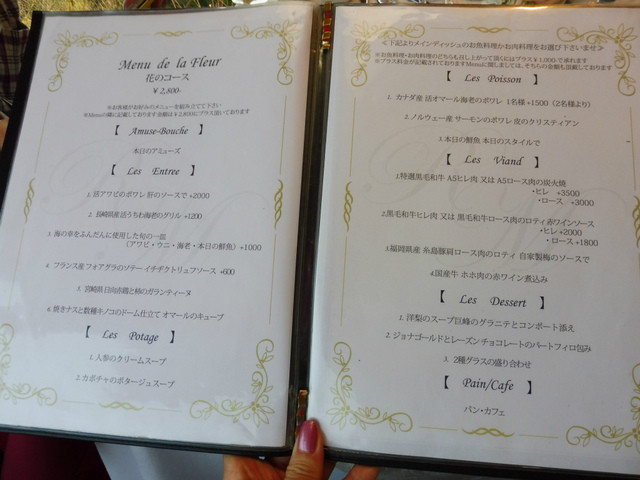 Menu de la Fleur
花のコース
￥2,800-
※お客様がお好みのメニューを組み立てて下さい
※Menuの横に記載しております金額は￥2,800にプラス頂いております
【 Amuse-Bouche 】
本日のアミューズ
【 Les Entree 】
1.活アワビのポワレ 肝のソースで +2000
2. 長崎県産活うちわ海老のグリル +1200
3. 海の幸をふんだんに使用した旬の一皿
（アワビ・ウニ・海老・本日の鮮魚）+1000
4. フランス産フォアグラのソテー イチヂクトリュフソース +600
5. 宮崎県日向赤鶏と柿のガランティーヌ
6. 焼きナスと数種キノコのドーム仕立て オマールのキューブ
【 Les Potage 】
1.人参のクリームスープ
2.カボチャのポタージュスープ
≪下記よりメインディッシュのお魚料理かお肉料理をお選び下さいませ≫
※お魚料理・お肉料理のどちらも召し上がって頂くにはプラス￥1,000-で承ります
※プラス料金が記載されておりますMenuに関しましては、そちらの金額も頂戴しております
【 Les Poisson 】
1. カナダ産 活オマール海老のポワレ 1名様+1500（2名様より）
2.ノルウェー産 サーモンのポワレ 皮のクリスティアン
3.本日の鮮魚 本日のスタイルで
【 Les Viand 】
1.特選黒毛和牛 A5ヒレ肉 又は A5ロース肉の炭火焼
・ヒレ +3500
・ロース +3000
2.黒毛和牛ヒレ肉 又は 黒毛和牛ロース肉のロティ赤ワインソース
・ヒレ+2000
・ロース+1800
3.福岡県産 糸島豚肩ロース肉のロティ 自家製梅のソースで
4.国産牛 ホホ肉の赤ワイン煮込み
【 Les Dessert 】
1. 洋梨のスープ巨峰のグラニテとコンポート添え
2. ジョナゴールドとレーズン チョコレートのパートフィロ包み
3. 2種グラスの盛り合わせ
【 Pain/Cafe 】
パン・カフェ